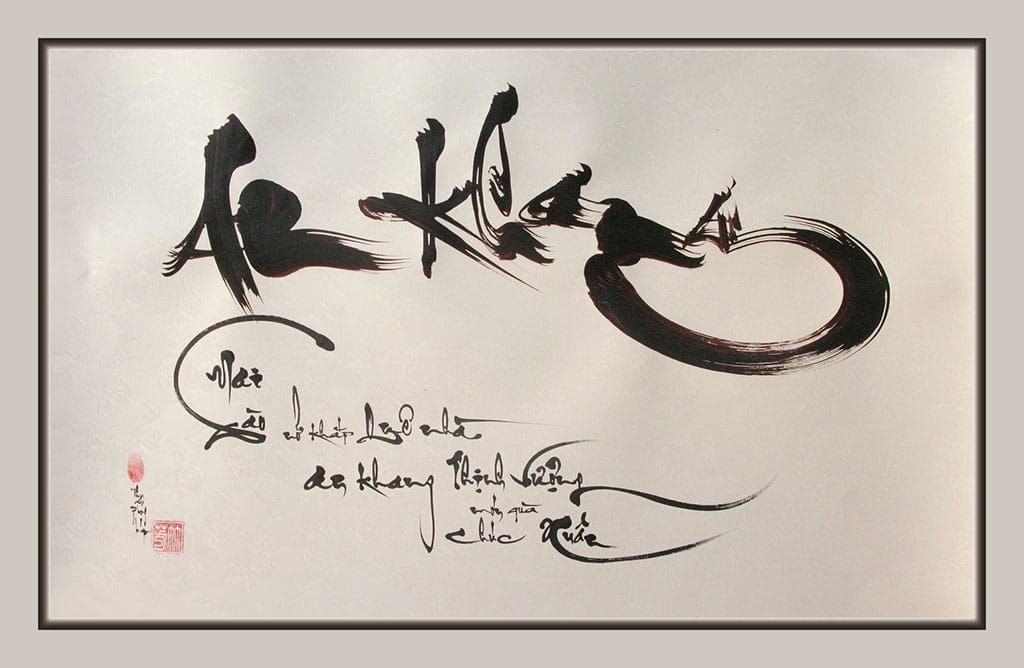 An Khang
Mai
Đào nở khắp Muôn nhà
an khang Thịnh Vượng
món quà
chúc Xuân